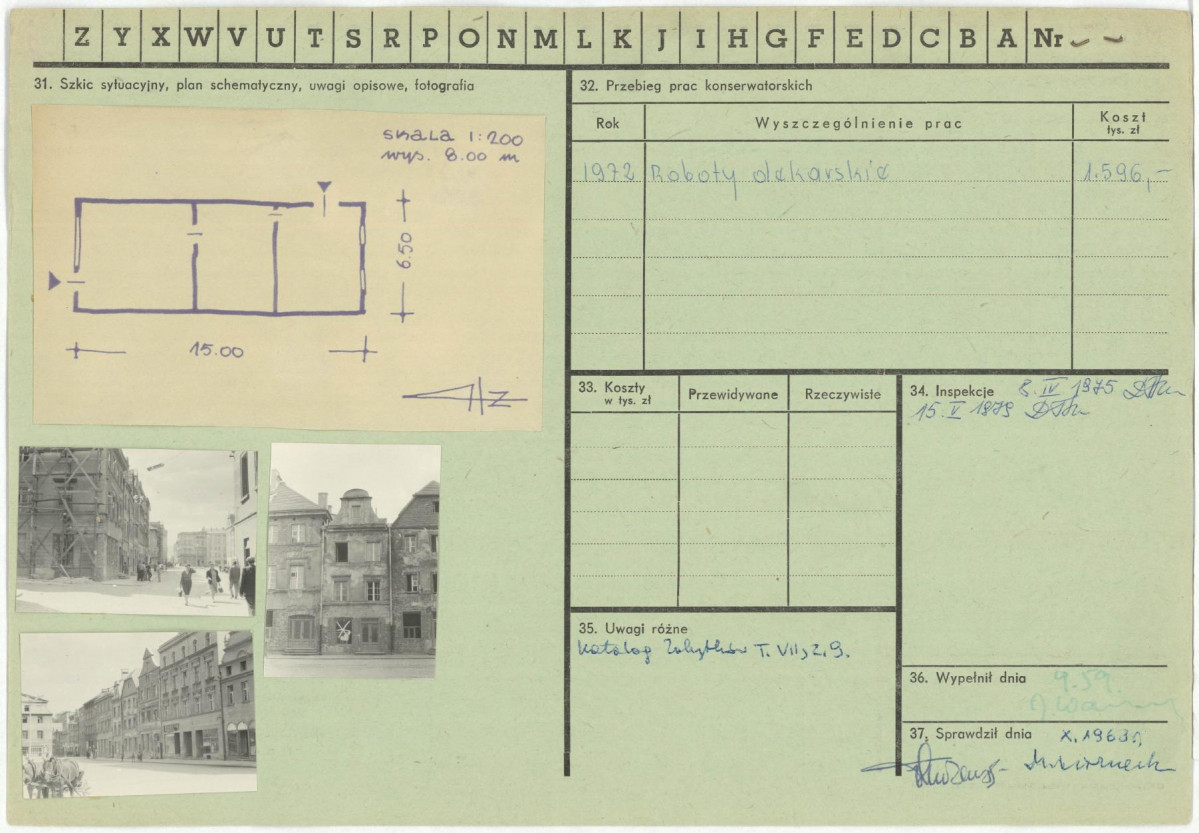 Z Y X W V U T S R P O N M L K J I H G F E D C B A Nr
31. Szkic sytuacyjny, plan schematyczny, uwagi opisowe, fotografia
SKALA 1:200
wys. 8.00 m
6.50
15.00
32. Przebieg prac konserwatorskich
Rok
Wyszczególnienie prac
Koszt
tys. zł
1972 Roboty dekarskie 1.596,-
33. Koszty
w tys. zł
Przewidywane
Rzeczywiste
34. Inspekcje 8. IV 1975
15. V 1979
35. Uwagi różne
Katalog Zabytków T. VII, z. 9.
36. Wypełnił dnia 9.59.
37. Sprawdził dnia X.1963